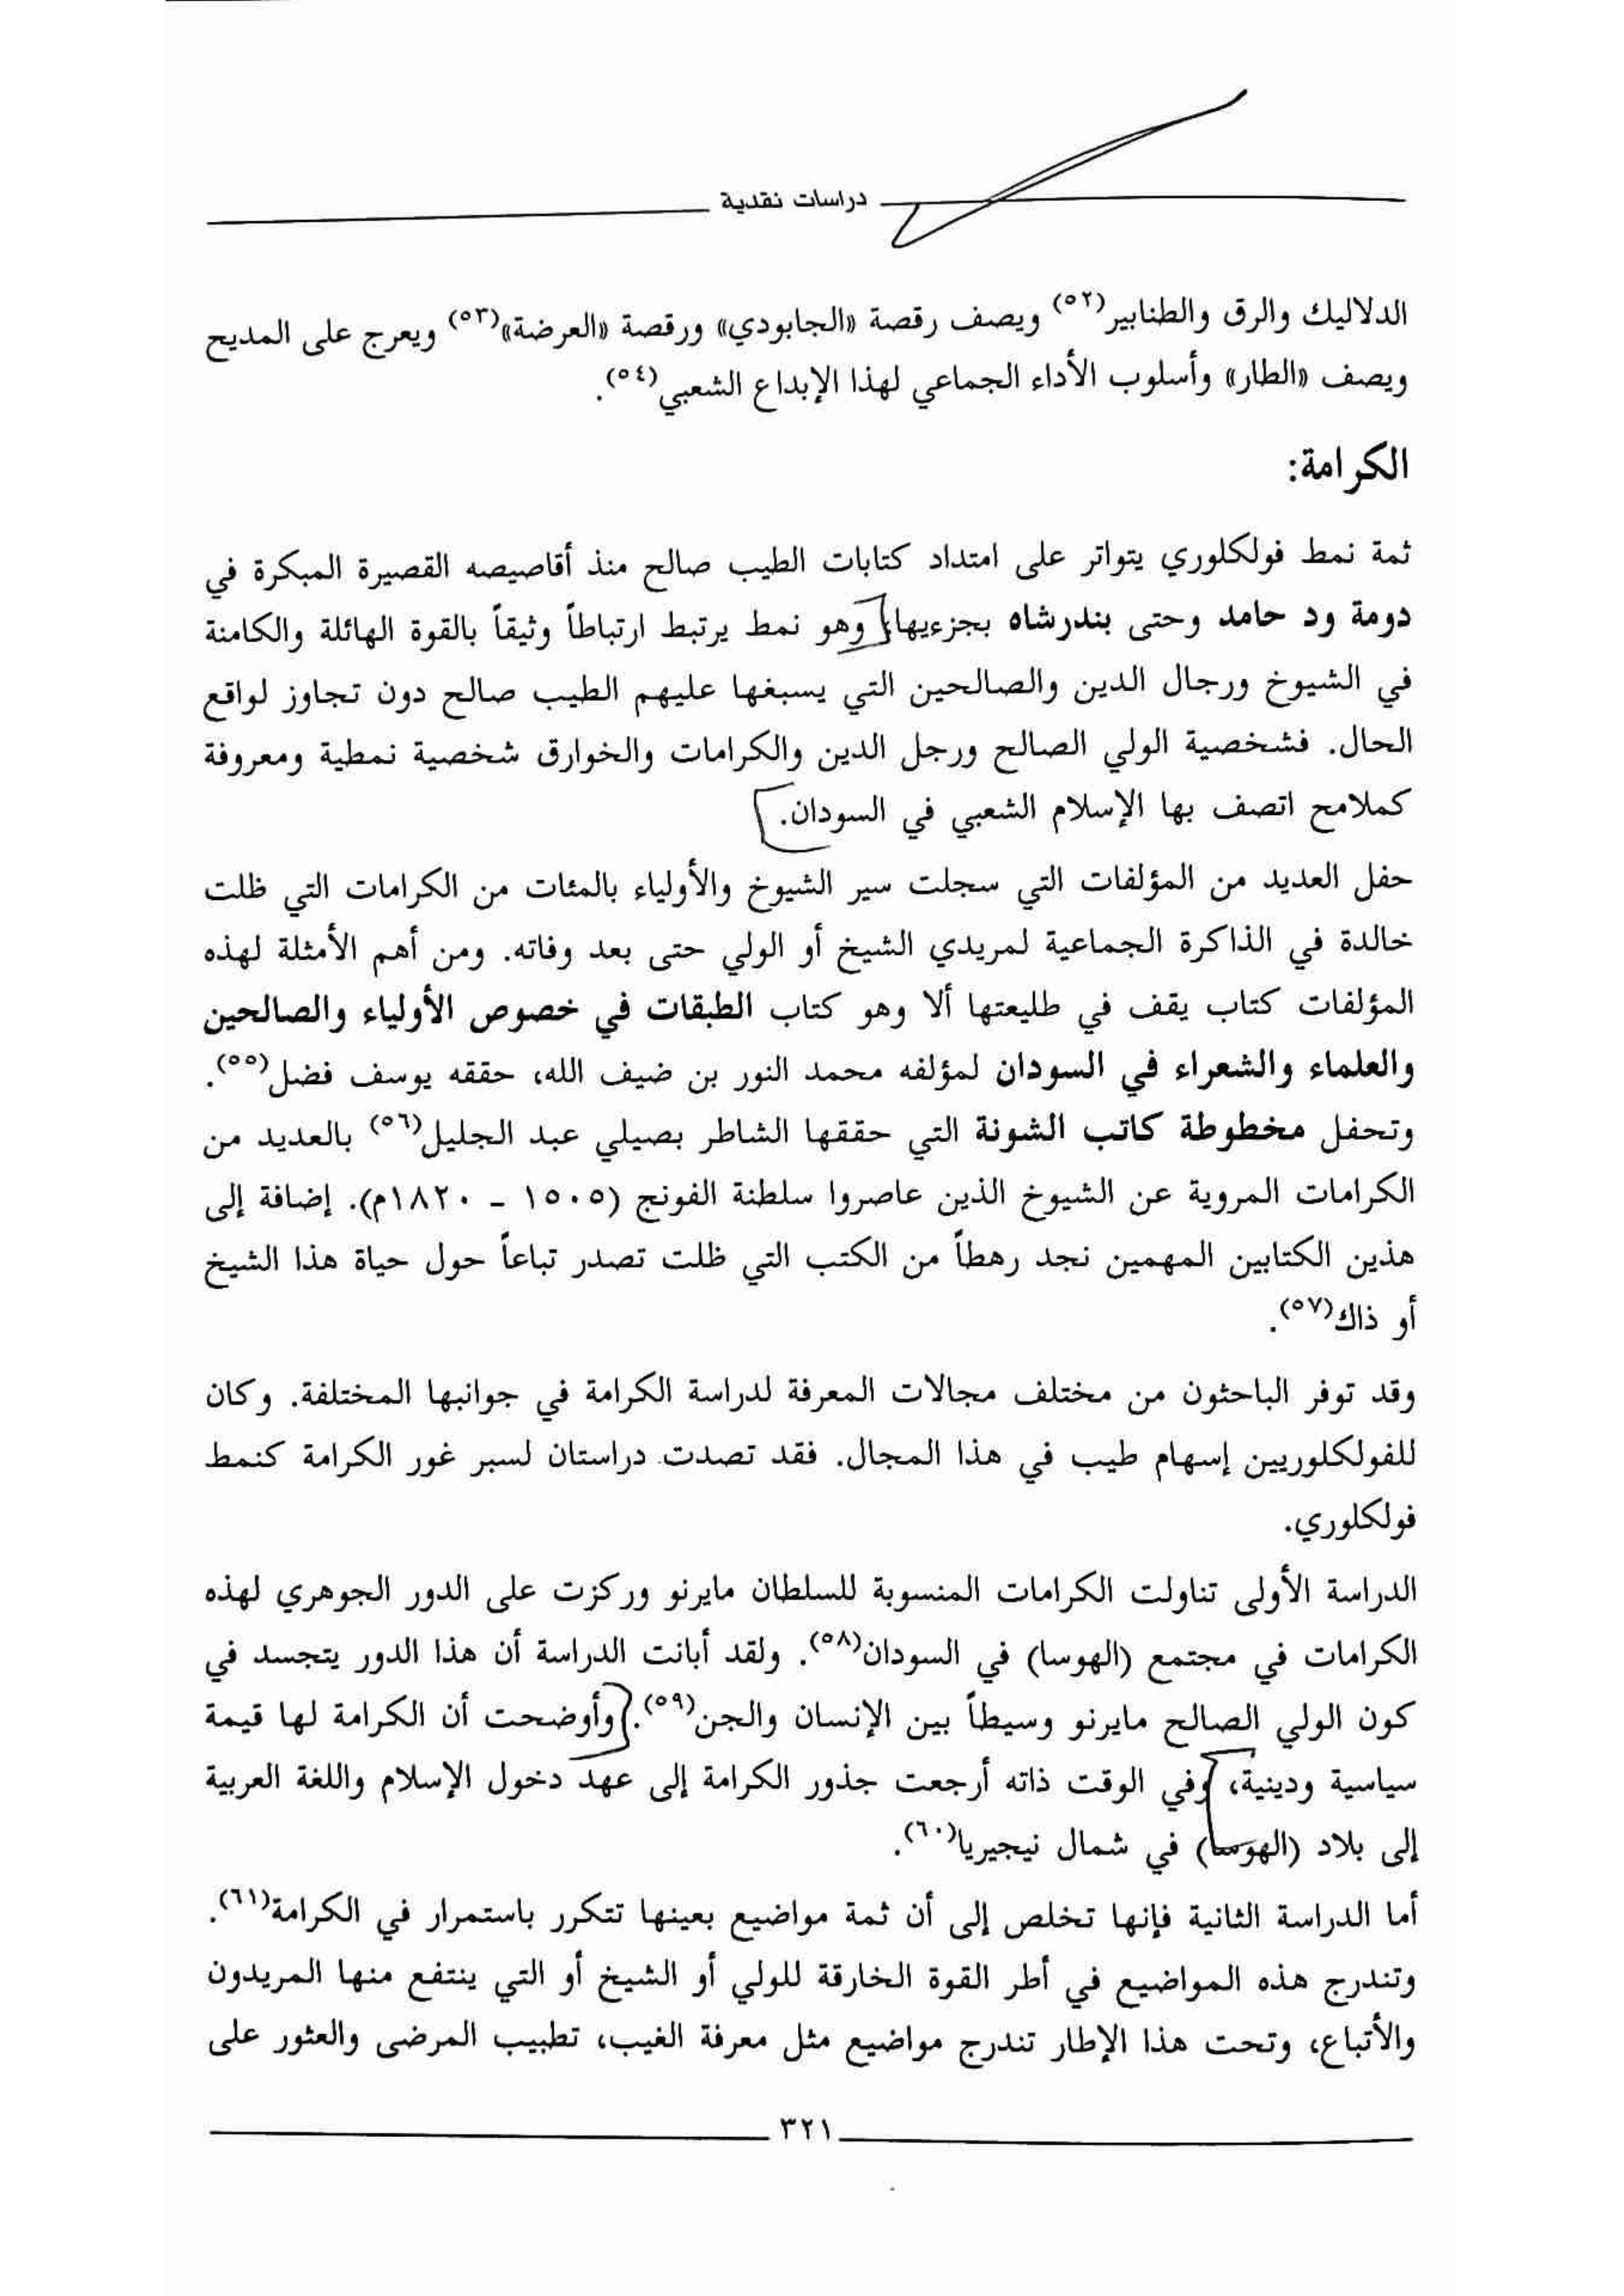 دراسات نقدية
الدلاليك والرق والطنابير(٥٢) ويصف رقصة «الجابودي» ورقصة «العرضة»(٥٣) ويعرج على المديح
ويصف «الطار» وأسلوب الأداء الجماعي لهذا الإبداع الشعبي(٥٤).
الكرامة:
ثمة نمط فولكلوري يتواتر على امتداد كتابات الطيب صالح منذ أقاصيصه القصيرة المبكرة في
دومة ود حامد وحتى بندرشاه بجزءيها، وهو نمط يرتبط ارتباطاً وثيقاً بالقوة الهائلة والكامنة
في الشيوخ ورجال الدين والصالحين التي يسبغها عليهم الطيب صالح دون تجاوز لواقع
الحال. فشخصية الولي الصالح ورجل الدين والكرامات والخوارق شخصية نمطية ومعروفة
كملامح اتصف بها الإسلام الشعبي في السودان.
حفل العديد من المؤلفات التي سجلت سير الشيوخ والأولياء بالمئات من الكرامات التي ظلت
خالدة في الذاكرة الجماعية لمريدي الشيخ أو الولي حتى بعد وفاته. ومن أهم الأمثلة لهذه
المؤلفات كتاب يقف في طليعتها ألا وهو كتاب الطبقات في خصوص الأولياء والصالحين
والعلماء والشعراء في السودان لمؤلفه محمد النور بن ضيف الله، حققه يوسف فضل(٥٥).
وتحفل مخطوطة كاتب الشونة التي حققها الشاطر بصيلي عبد الجليل(٥٦) بالعديد من
الكرامات المروية عن الشيوخ الذين عاصروا سلطنة الفونج (١٥٠٥ - ١٨٢٠م). إضافة إلى
هذين الكتابين المهمين نجد رهطاً من الكتب التي ظلت تصدر تباعاً حول حياة هذا الشيخ
أو ذاك(٥٧).
وقد توفر الباحثون من مختلف مجالات المعرفة لدراسة الكرامة في جوانبها المختلفة. وكان
للفولكلوريين إسهام طيب في هذا المجال. فقد تصدت دراستان لسبر غور الكرامة كنمط
فولكلوري.
الدراسة الأولى تناولت الكرامات المنسوبة للسلطان مايرنو وركزت على الدور الجوهري لهذه
الكرامات في مجتمع (الهوسا) في السودان(٥٨). ولقد أبانت الدراسة أن هذا الدور يتجسد في
كون الولي الصالح مايرنو وسيطاً بين الإنسان والجن(٥٩). وأوضحت أن الكرامة لها قيمة
سياسية ودينية، وفي الوقت ذاته أرجعت جذور الكرامة إلى عهد دخول الإسلام واللغة العربية
إلى بلاد (الهوسا) في شمال نيجيريا(٦٠).
أما الدراسة الثانية فإنها تخلص إلى أن ثمة مواضيع بعينها تتكرر باستمرار في الكرامة(٦١).
وتندرج هذه المواضيع في أطر القوة الخارقة للولي أو الشيخ أو التي ينتفع منها المريدون
والأتباع، وتحت هذا الإطار تندرج مواضيع مثل معرفة الغيب، تطبيب المرضى والعثور على
٣٢١